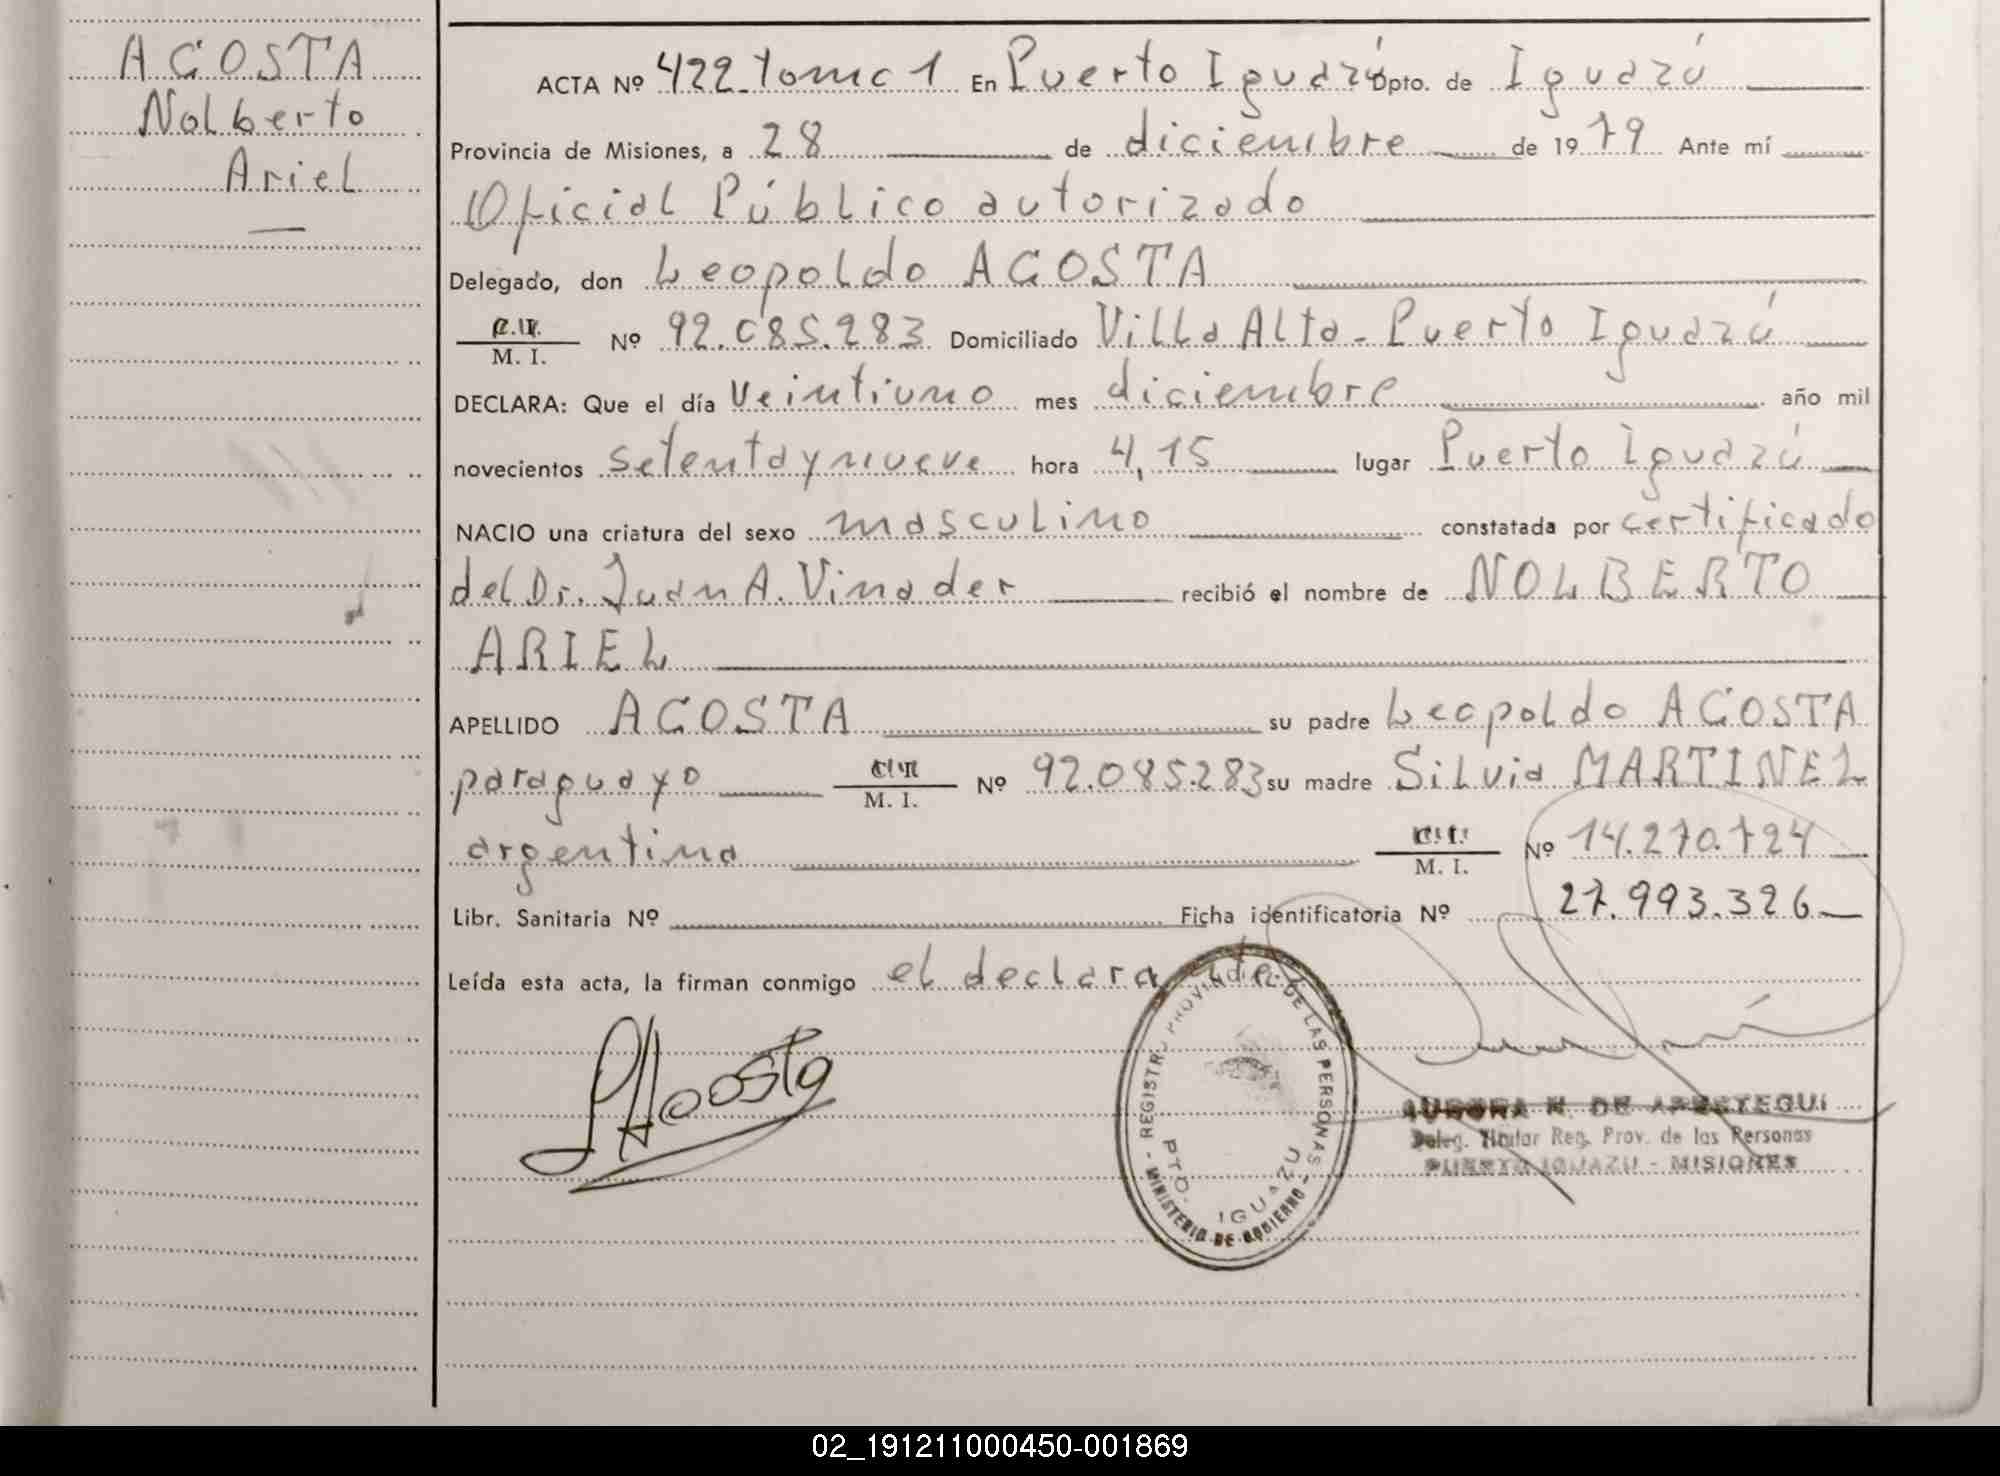 ACOSTA
Nolberto
Ariel
ACTA Nº 422 tomo 1 En Puerto Iguazú Dpto. de Iguazú
Provincia de Misiones, a 28 de diciembre de 1979 Ante mí
Oficial Público autorizado
Delegado, don Leopoldo ACOSTA
C.I.
M. I. Nº 92.085.283 Domiciliado Villa Alta - Puerto Iguazú
DECLARA: Que el día veintiuno mes diciembre año mil
novecientos setenta y nueve hora 4,15 lugar Puerto Iguazú
NACIO una criatura del sexo masculino constatada por certificado
del Dr. Juan A. Vinader recibió el nombre de NOLBERTO
ARIEL
APELLIDO ACOSTA su padre Leopoldo ACOSTA
paraguayo C.I. M. I. Nº 92.085.283 su madre Silvia MARTINEZ
argentina C.I. M. I. Nº 14.270.724
Libr. Sanitaria Nº Ficha identificatoria Nº 27.993.326
Leída esta acta, la firman conmigo el declarante.
LAcosta
REGISTRO PROVINCIAL DE LAS PERSONAS
PTO. IGUAZU
- MINISTERIO DE GOBIERNO -
AURORA N. DE ARESTEGUI
Deleg. Titular Reg. Prov. de las Personas
PUERTO IGUAZU - MISIONES
02_191211000450-001869